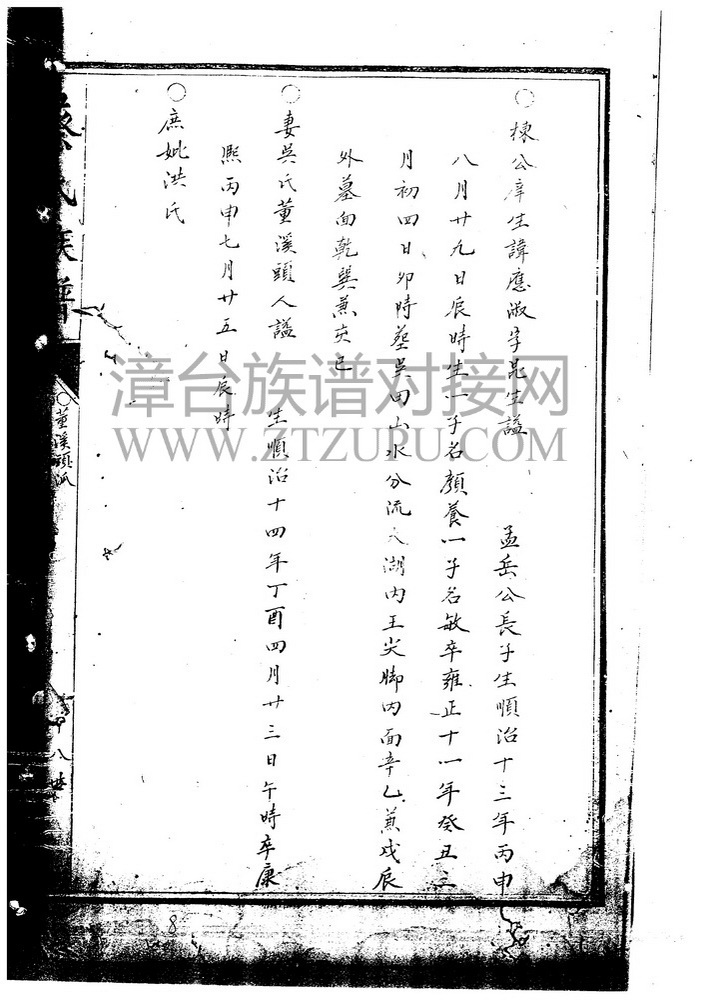 ○棟公庠生諱應淑字昆生謚 孟岳公長子生順治十三年丙申
八月廿九日辰時生一子名顏養一子名敏卒雍正十一年癸丑三
月初四日卯時葬吳田山水分流大湖內王尖脚內面辛乙兼戍辰
外墓面乾巽兼亥巳
○妻吳氏董溪頭人謚 生順治十四年丁酉四月廿三日午時卒康
熙丙申七月廿五日辰時
○庶妣洪氏
蔡氏族譜
○董溪頭派
八世
8
漳台族谱对接网
WWW.ZTZUPU.COM